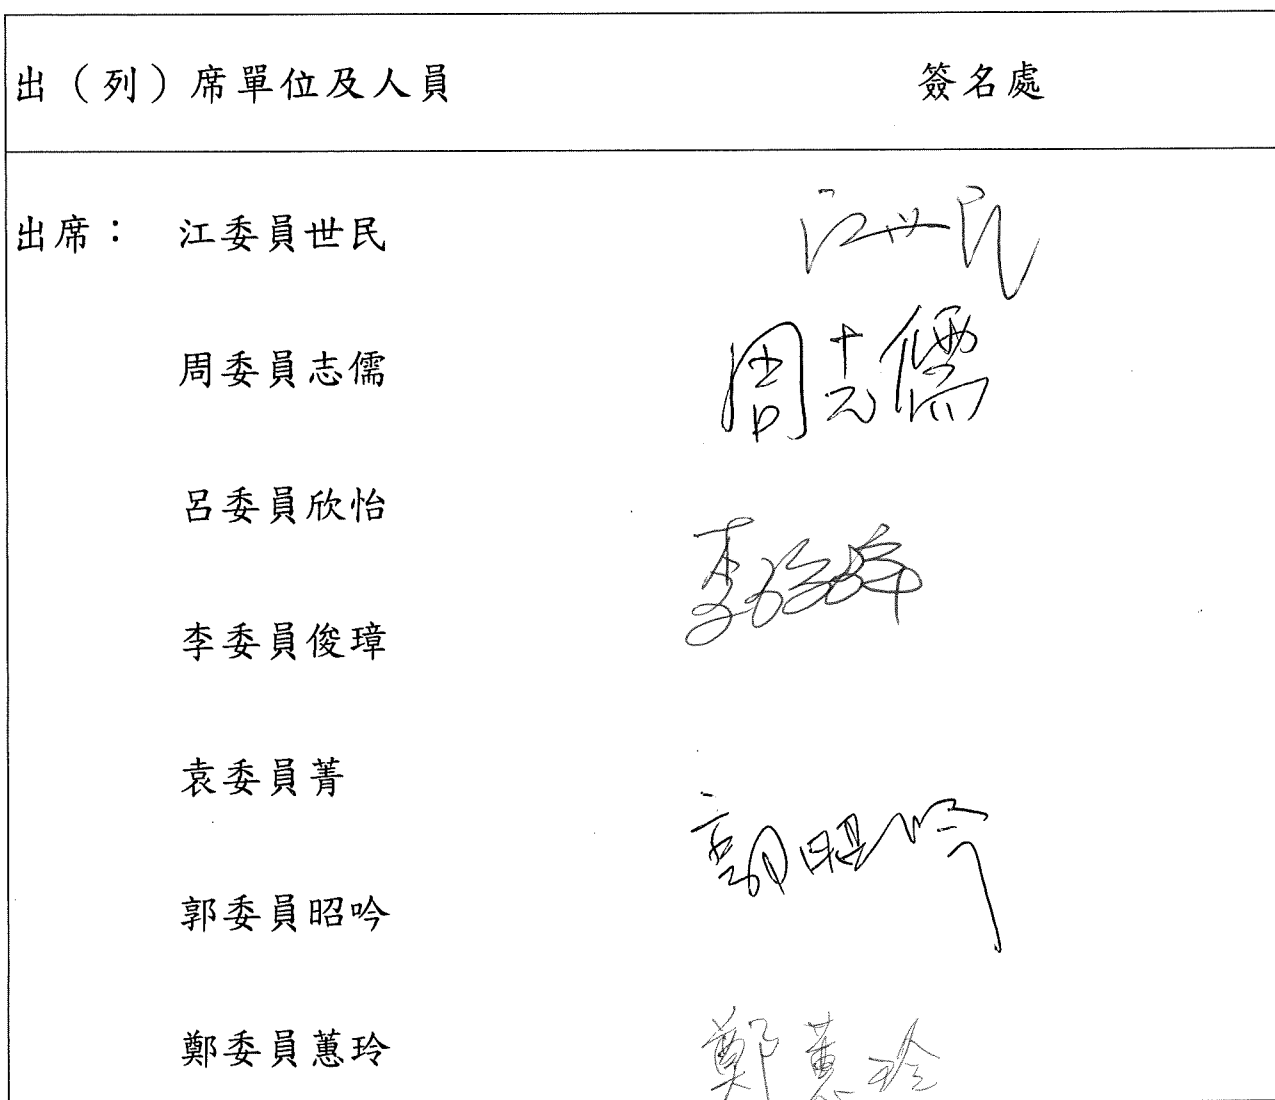 出（列）席單位及人員 簽名處
出席： 江委員世民 江世民
周委員志儒 周志儒
呂委員欣怡
李委員俊璋 李俊璋
袁委員菁
郭委員昭吟 郭昭吟
鄭委員蕙玲 鄭蕙玲